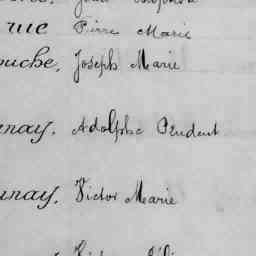 rue Pierre Marie
ouche, Joseph Marie
nay, Adolphe Prudent
unay, Victor Marie